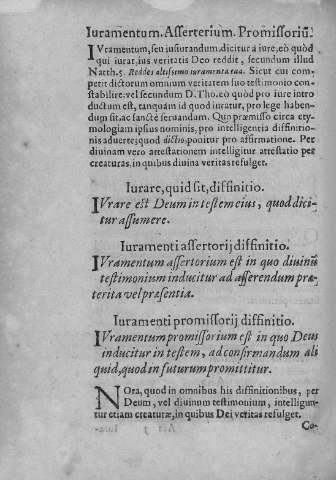 Iuramentum. Asserterium. Promissoriũ.
IVramentum, seu iusiurandum, dicitur a iure, eò quòd
qui iurat, ius veritatis Deo reddit, secundum illud
Natth. 5. Reddes altissimo iuramenta tua. Sicut cui com-
petit dictorum omnium veritatem suo testimonio con-
stabilire: vel secundum D. Tho. eò quòd pro iure intro
ductum est, tanquam id quod iuratur, pro lege haben-
dum sit, ac sanctè seruandum. Quo præmisso circa ety-
mologiam ipsius nominis, pro intelligentia diffinitio-
nis aduerte: quod dictio, ponitur pro affirmatione. Per
diuinam vero attestationem intelligitur attestatio per
creaturas, in quibus diuina veritas refulget.
Iurare, quid sit, diffinitio.
IVrare est Deum in testem eius, quod dici-
tur assumere.
Iuramenti assertorij diffinitio.
IVramentum assertorium est in quo diuinũ
testimonium inducitur ad asserendum præ-
terita vel præsentia.
Iuramenti promissorij diffinitio.
IVramentum promissorium est in quo Deus
inducitur in testem, ad confirmandum ali
quid, quod in futurum promittitur.
NOra, quod in omnibus his diffinitionibus, per
Deum, vel diuinum testimonium, intelligun-
tur etiam creaturæ, in quibus Dei veritas refulget.
Co-